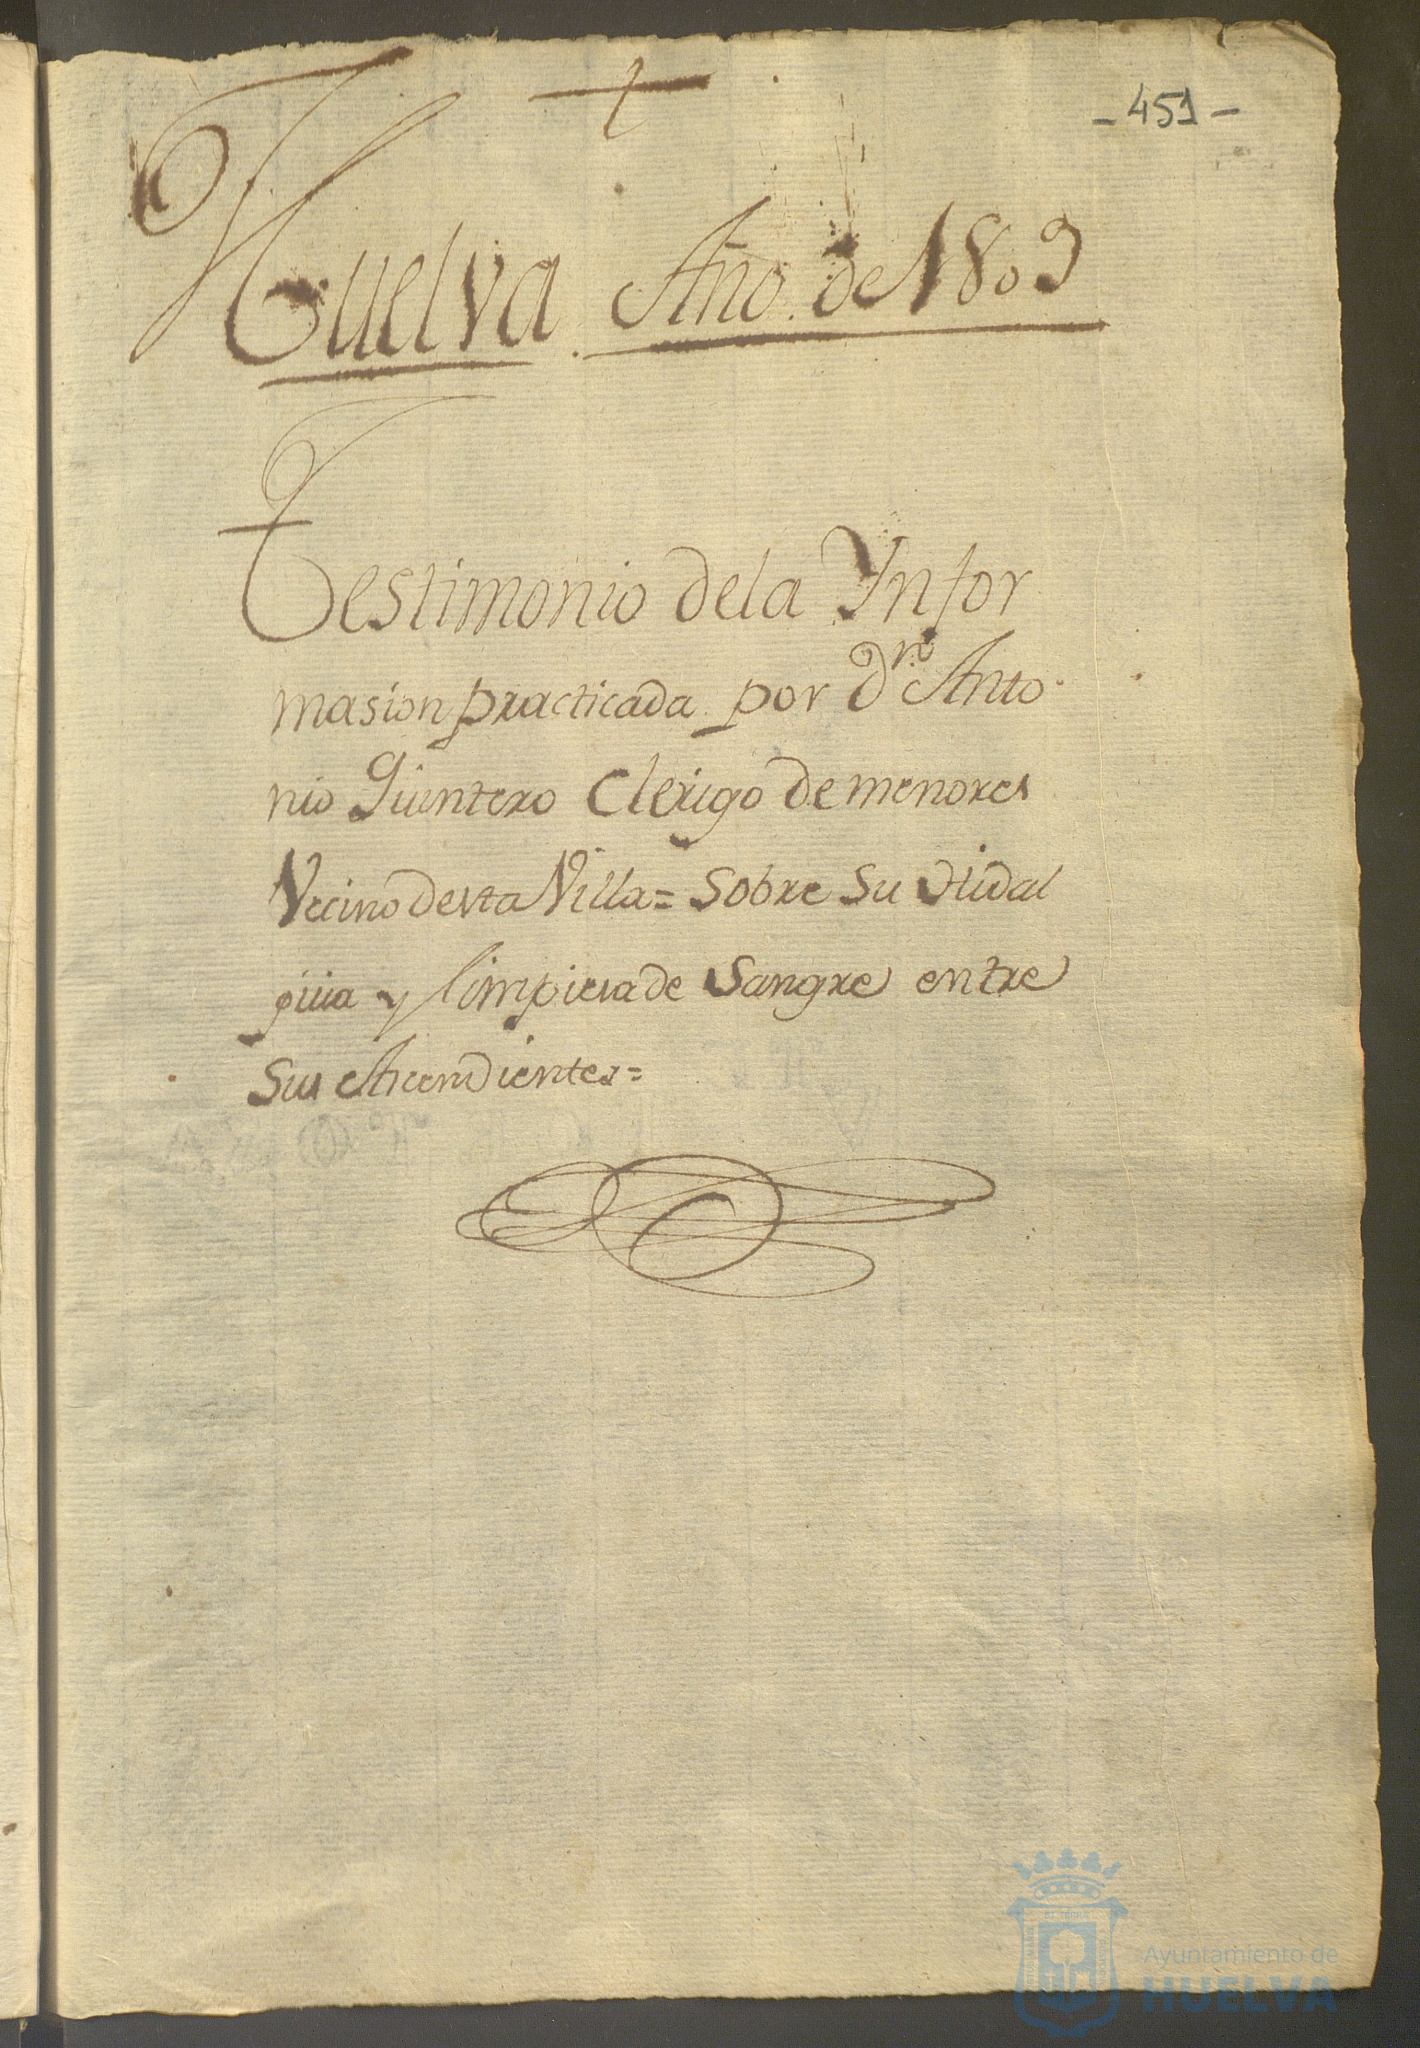 +
- 451 -
Huelva. Año. de 1809
Testimonio dela Ynfor
masion practicada por Dn. Anto
nio Quintero Clerigo de menores
Vecino desta Villa = sobre su Hidal
guia y limpiesa de Sangre entre
Sus Ascendientes =
Ayuntamiento de
HUELVA